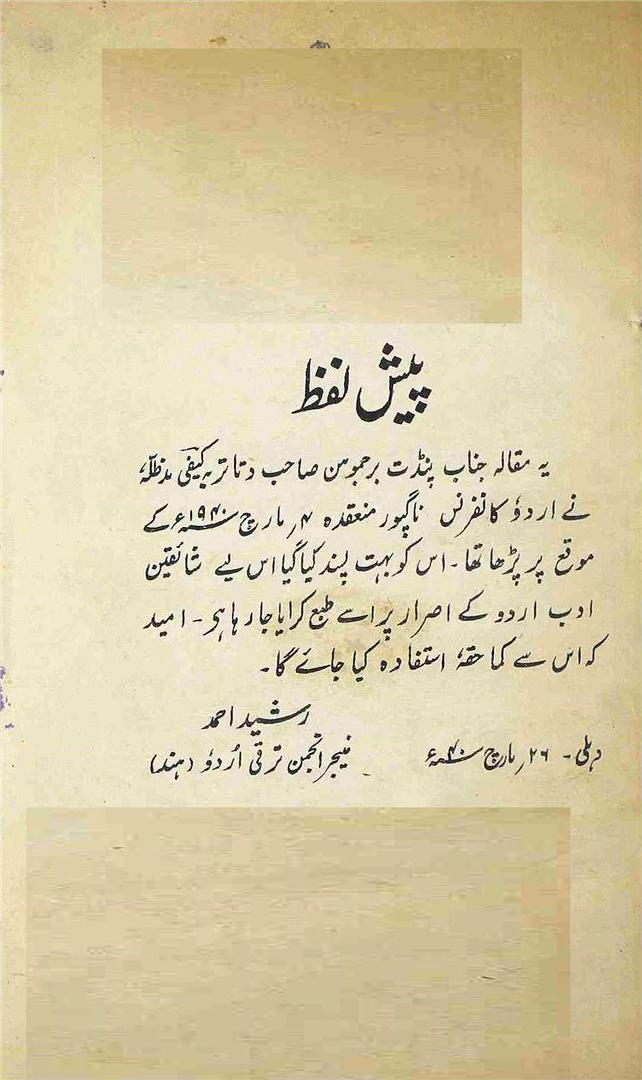 پیش لفظ
یہ مقالہ جناب پنڈت برجموہن صاحب دتاتریہ کیفی مدظلہٗ
نے اردؤ کانفرنس ناگپور منعقدہ ۴؍ مارچ ۱۹۴۰ء کے
موقع پر پڑھا تھا۔ اس کو بہت پسند کیا گیا اس لیے شائقین
ادب اردو کے اصرار پر اسے طبع کرایا جا رہا ہی۔ امید
کہ اس سے کما حقہٗ استفادہ کیا جائے گا۔
رشید احمد
منیجر انجمن ترقی اُردؤ (ہند)
دہلی۔ ۲۶؍ مارچ ۴۰ء